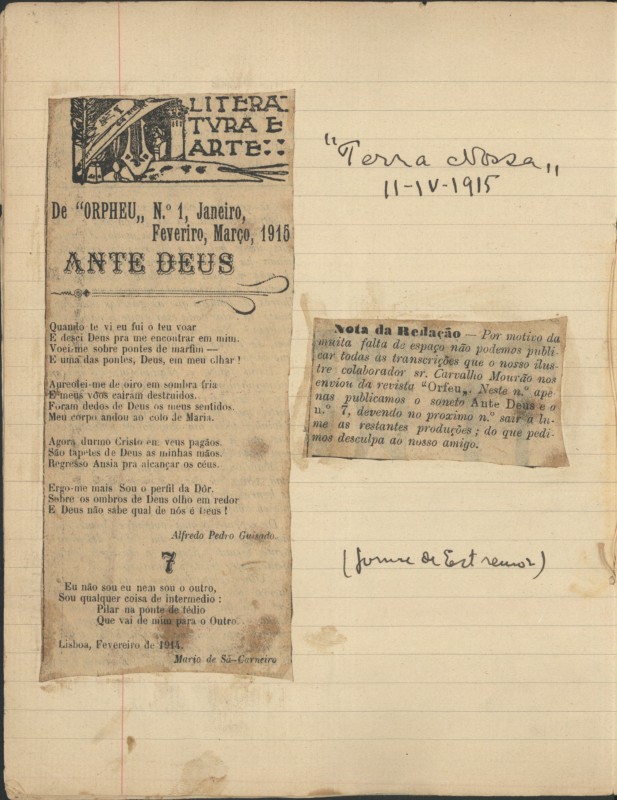 Nº 1
LITERA-
TVRA E
ARTE::
De "ORPHEU„ N.º 1, Janeiro,
Feveriro, Março, 1915
ANTE DEUS
Quando te vi eu fui o teu voar
E desci Deus pra me encontrar em mim.
Voei-me sobre pontes de marfim —
E uma das pontes, Deus, em meu olhar !
Apreofei-me de oiro em sombra fria
E meus vôos cairam destruidos.
Foram dedos de Deus os meus sentidos.
Meu corpo andou ao colo de Maria.
Agora durmo Cristo em veus pagãos.
São tapetes de Deus as minhas mãos.
Regresso Ansia pra alcançar os céus.
Ergo-me mais Sou o perfil da Dôr.
Sobre os ombros de Deus olho em redor
E Deus não sabe qual de nós é Deus !
Alfredo Pedro Guisado.
7
Eu não sou eu nem sou o outro,
Sou qualquer coisa de intermedio :
Pilar na ponte de tédio
Que vai de mim para o Outro.
Lisboa, Fevereiro de 1914.
Mario de Sá-Carneiro
"Terra Nossa„
11-IV-1915
Nota da Redação — Por motivo da
muita falta de espaço não podemos publi-
car todas as transcrições que o nosso ilus-
tre colaborador sr. Carvalho Mourão nos
enviou da revista "Orfeu„. Neste n.º ape-
nas publicamos o soneto Ante Deus e o
n.º 7, devendo no proximo n.º sair a lu-
me as restantes produções ; do que pedi-
mos desculpa ao nosso amigo.
(Jornal de Estremoz)